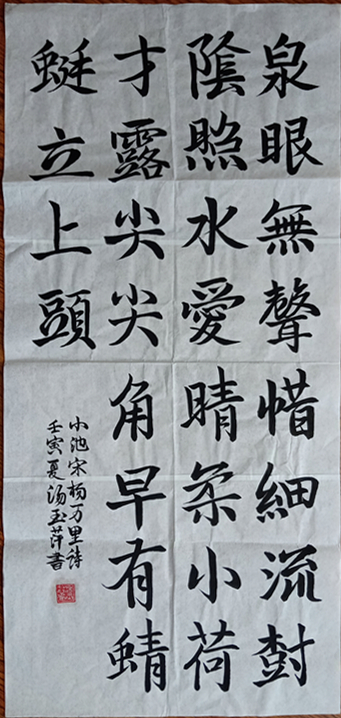 泉眼無聲惜細流樹
陰照水愛晴柔小荷
才露尖尖角早有蜻
蜓立上頭
小池宋楊万里詩
壬寅夏湯玉萍書